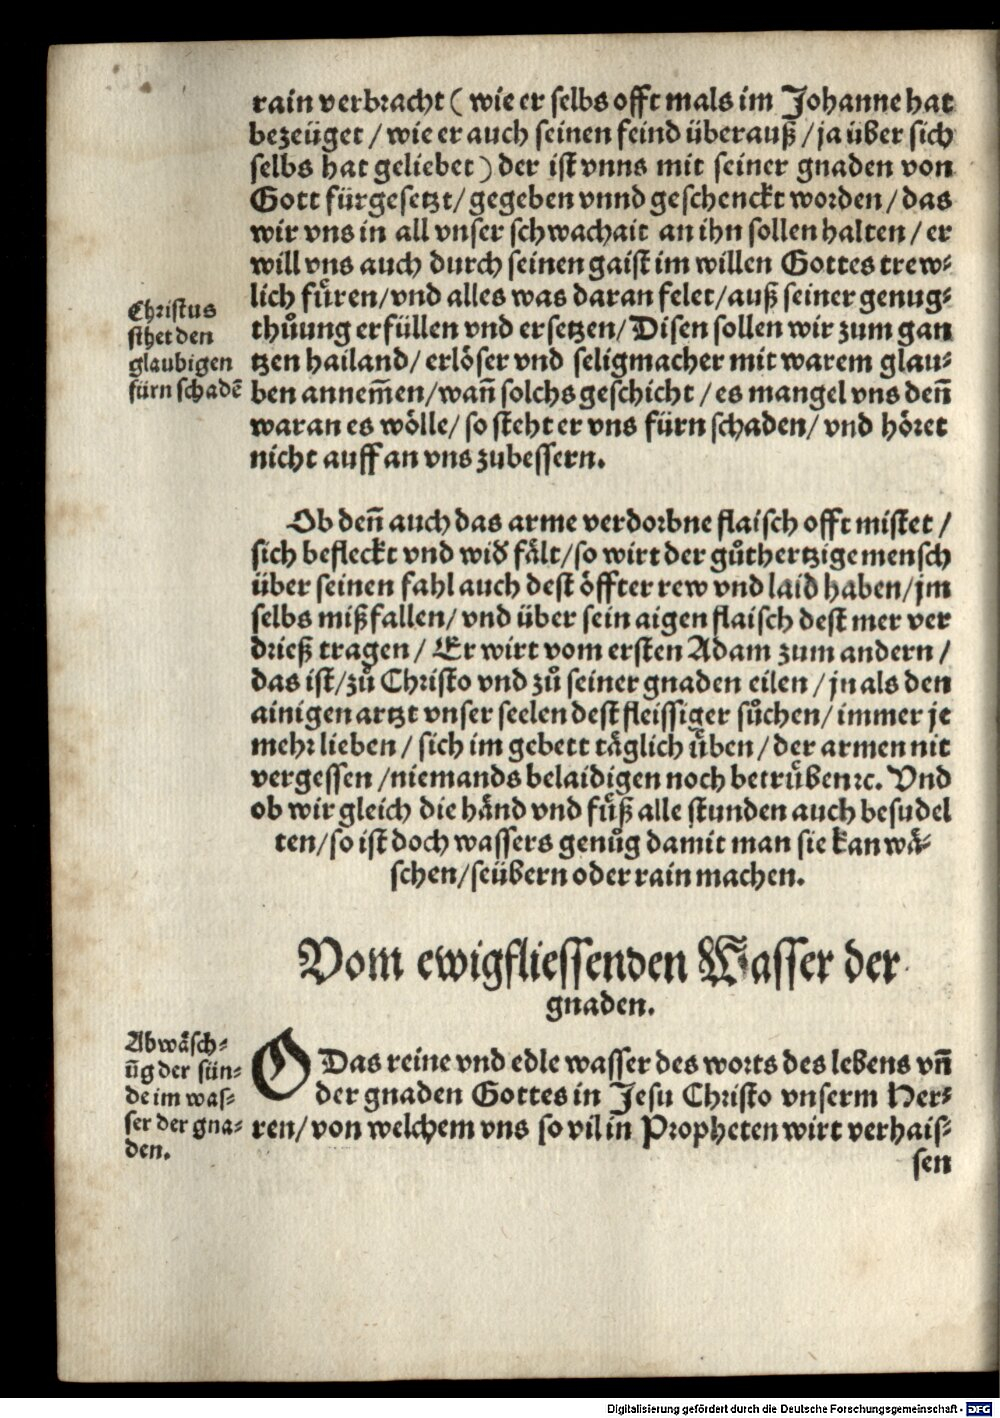 rain verbracht ( wie er selbs offt mals im Johanne hat
bezeüget / wie er auch seinen feind überauß / ja über sich
selbs hat geliebet ) der ist vnns mit seiner gnaden von
Gott fürgesetzt / gegeben vnnd geschenckt worden / das
wir vns in all vnser schwachait an ihn sollen halten / er
will vns auch durch seinen gaist im willen Gottes trew⸗
lich fuͤren / vnd alles was daran felet / auß seiner genug⸗
thůung erfüllen vnd ersetzen / Disen sollen wir zum gan
tzen hailand / erlöser vnd seligmacher mit warem glau⸗
ben annem̃en / wañ solchs geschicht / es mangel vns deñ
waran es wölle / so steht er vns fürn schaden / vnd höret
nicht auff an vns zubessern.
Christus
sthet den
glaubigen
fürn schadẽ
Ob deñ auch das arme verdorbne flaisch offt mistet /
sich befleckt vnd wid̕ fält / so wirt der gůthertzige mensch
über seinen fahl auch dest öffter rew vnd laid haben / jm
selbs mißfallen / vnd über sein aigen flaisch dest mer ver
drieß tragen / Er wirt vom ersten Adam zum andern /
das ist / zů Christo vnd zů seiner gnaden eilen / jn als den
ainigen artzt vnser seelen dest fleissiger sůchen / immer je
mehr lieben / sich im gebett täglich uͤben / der armen nit
vergessen / niemands belaidigen noch betruͤben ꝛc. Vnd
ob wir gleich die händ vnd fuͤß alle stunden auch besudel
ten / so ist doch wassers genůg damit man sie kan wä⸗
schen / seübern oder rain machen.
Vom ewigfliessenden Wasser der
gnaden.
Abwäsch⸗
ũg der sün⸗
de im was⸗
ser der gna⸗
den.
O Das reine vnd edle wasser des worts des lebens vñ
der gnaden Gottes in Jesu Christo vnserm Her⸗
ren / von welchem vns so vil in Propheten wirt verhais⸗
sen
Digitalisierung gefördert durch die Deutsche Forschungsgemeinschaft - DFG